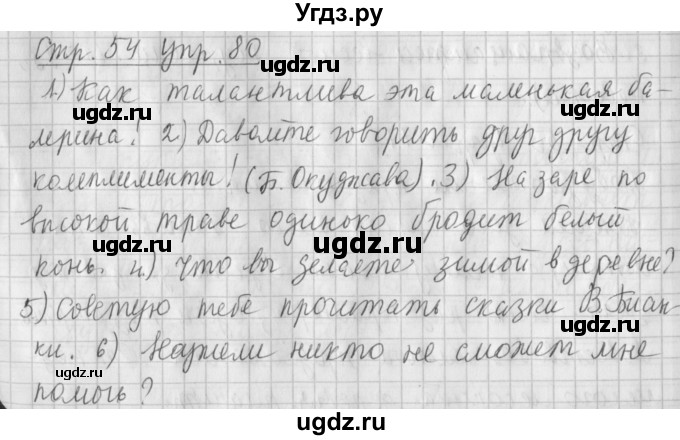 Угдз.ру
Стр. 54 упр. 80
1) Как талантлива эта маленькая ба-
лерина! 2) Давайте говорить друг другу
комплименты! (Б. Окуджава). 3) На заре по
высокой траве одиноко бродит белый
конь. 4) Что вы делаете зимой в деревне?
5) Советую тебе прочитать сказки В. Биан-
ки. 6) Неужели никто не сможет мне
помочь?
ugdz.ru
ugdz.ru
ugdz.ru
ugdz.ru
ugdz.ru
ugdz.ru
ugdz.ru
ugdz.ru
ugdz.ru
ugdz.ru
ugdz.ru
ugdz.ru
ugdz.ru